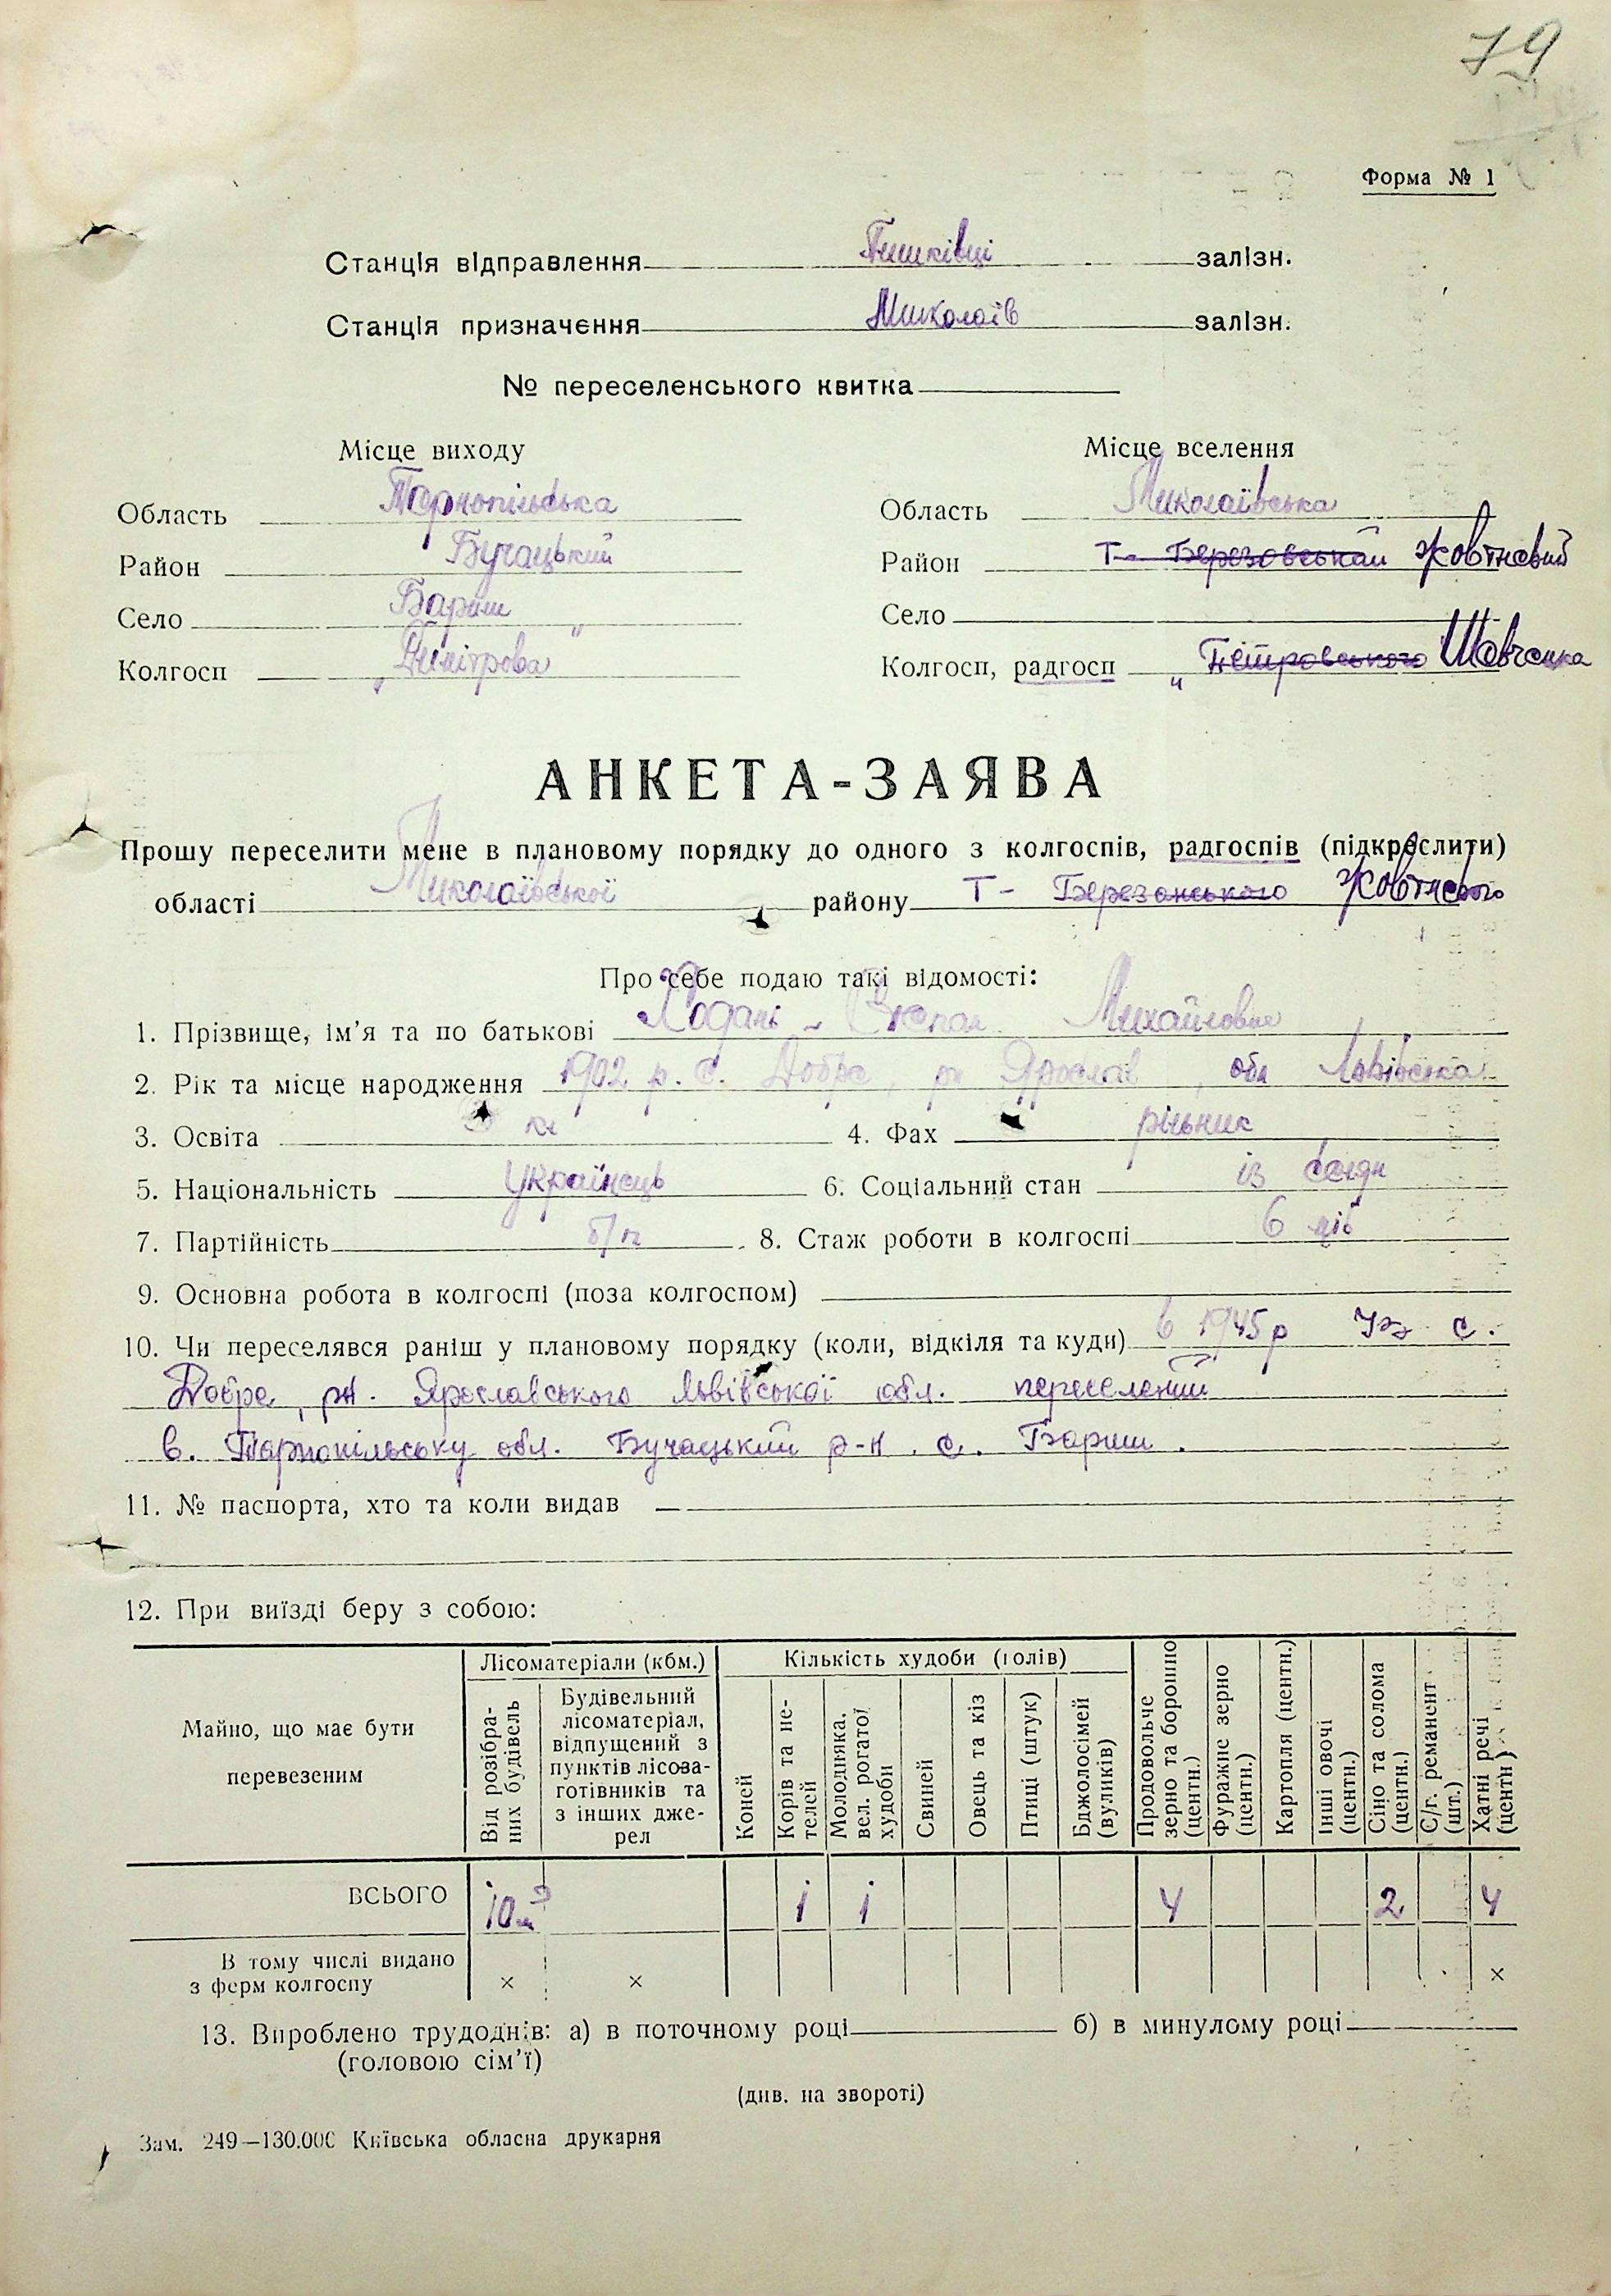 79
Форма № 1
Станція відправлення Пишківці залізн.
Станція призначення Миколаїв залізн.
№ переселенського квитка
Місце виходу Місце вселення
Область Тернопільська Область Миколаївська
Район Бучацький Район Т- Березовський Жовтневий
Село Бариш Село
Колгосп „Димітрова" Колгосп, радгосп „Петровського Шевченка
АНКЕТА-ЗАЯВА
Прошу переселити мене в плановому порядку до одного з колгоспів, радгоспів (підкреслити)
області Миколаївської району Т- Березанського Жовтневого
Про себе подаю такі відомості:
1. Прізвище, ім'я та по батькові Степан Михайлович
2. Рік та місце народження 1902 р. с. Добра, рн Ярослав, обл Львівська
3. Освіта кл 4. Фах рільник
5. Національність Українець 6. Соціальний стан із бідн
7. Партійність б/п 8. Стаж роботи в колгоспі 6 літ
9. Основна робота в колгоспі (поза колгоспом)
10. Чи переселявся раніш у плановому порядку (коли, відкіля та куди) в 1945 р Із с.
Добре, рн. Ярославського Львівської обл. переселений
в. Тарнопільську обл. Бучацький р-н. с. Бариш.
11. № паспорта, хто та коли видав —
12. При виїзді беру з собою:
Майно, що має бути перевезеним
Лісоматеріали (кбм.)
Від розібраних будівель
Будівельний лісоматеріал, відпущений з пунктів лісозаготівників та з інших джерел
Кількість худоби (голів)
Коней
Корів та нетелей
Молодняка, вел. рогатої худоби
Свиней
Овець та кіз
Птиці (штук)
Бджолосімей (вуликів)
Продовольче зерно та борошно (центн.)
Фуражне зерно (центн.)
Картопля (центн.)
Інші овочі (центн.)
Сіно та солома (центн.)
С/г. реманент (шт.)
Хатні речі (центн.)
ВСЬОГО 10 м³ 1 1 4 2 4
В тому числі видано
з ферм колгоспу × × ×
13. Вироблено трудоднів: а) в поточному році б) в минулому році
(головою сім'ї)
(див. на звороті)
Зам. 249—130.000 Київська обласна друкарня